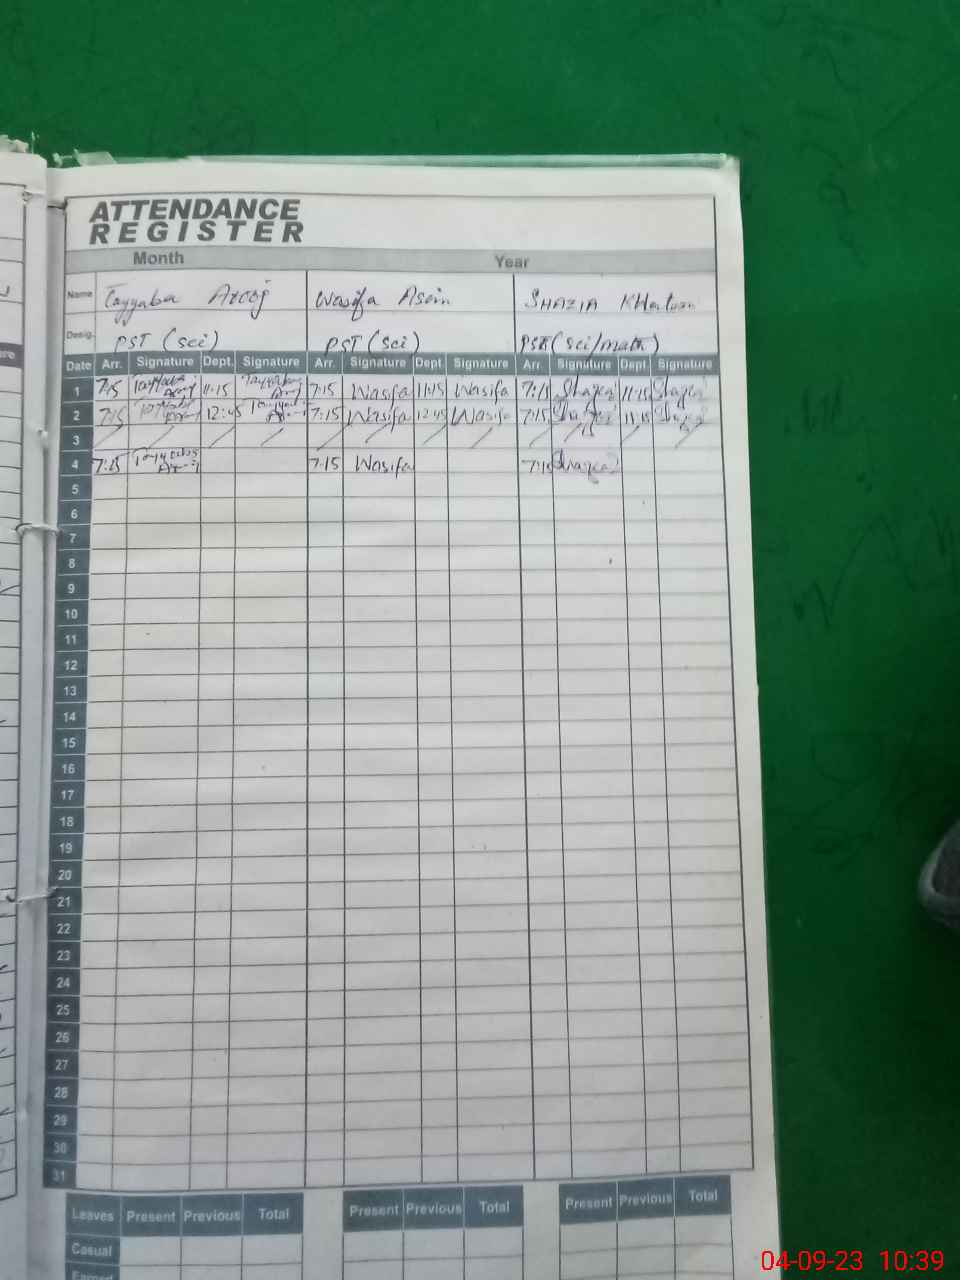 ATTENDANCE
REGISTER
Month Year
Name Tayyaba Arooj Wasifa Asim SHAZIA KHatoon
Desig. PST (Sci) PST (Sci) PST (Sci/math)
Date Arr. Signature Dept. Signature Arr. Signature Dept Signature Arr. Signature Dept Signature
1 7:15 Tayyaba Arooj 11:15 Tayyaba Arooj 7:15 Wasifa 11:15 Wasifa 7:15 Shazia 11:15 Shazia
2 7:15 Tayyaba Arooj 12:45 Tayyaba Arooj 7:15 Wasifa 12:45 Wasifa 7:15 Shazia Shazia
3
4 7:15 Tayyaba Arooj 7:15 Wasifa 7:15 Shazia
5
6
7
8
9
10
11
12
13
14
15
16
17
18
19
20
21
22
23
24
25
26
27
28
29
30
31
Leaves Present Previous Total Present Previous Total Present Previous Total
Casual
Earned
04-09-23 10:39